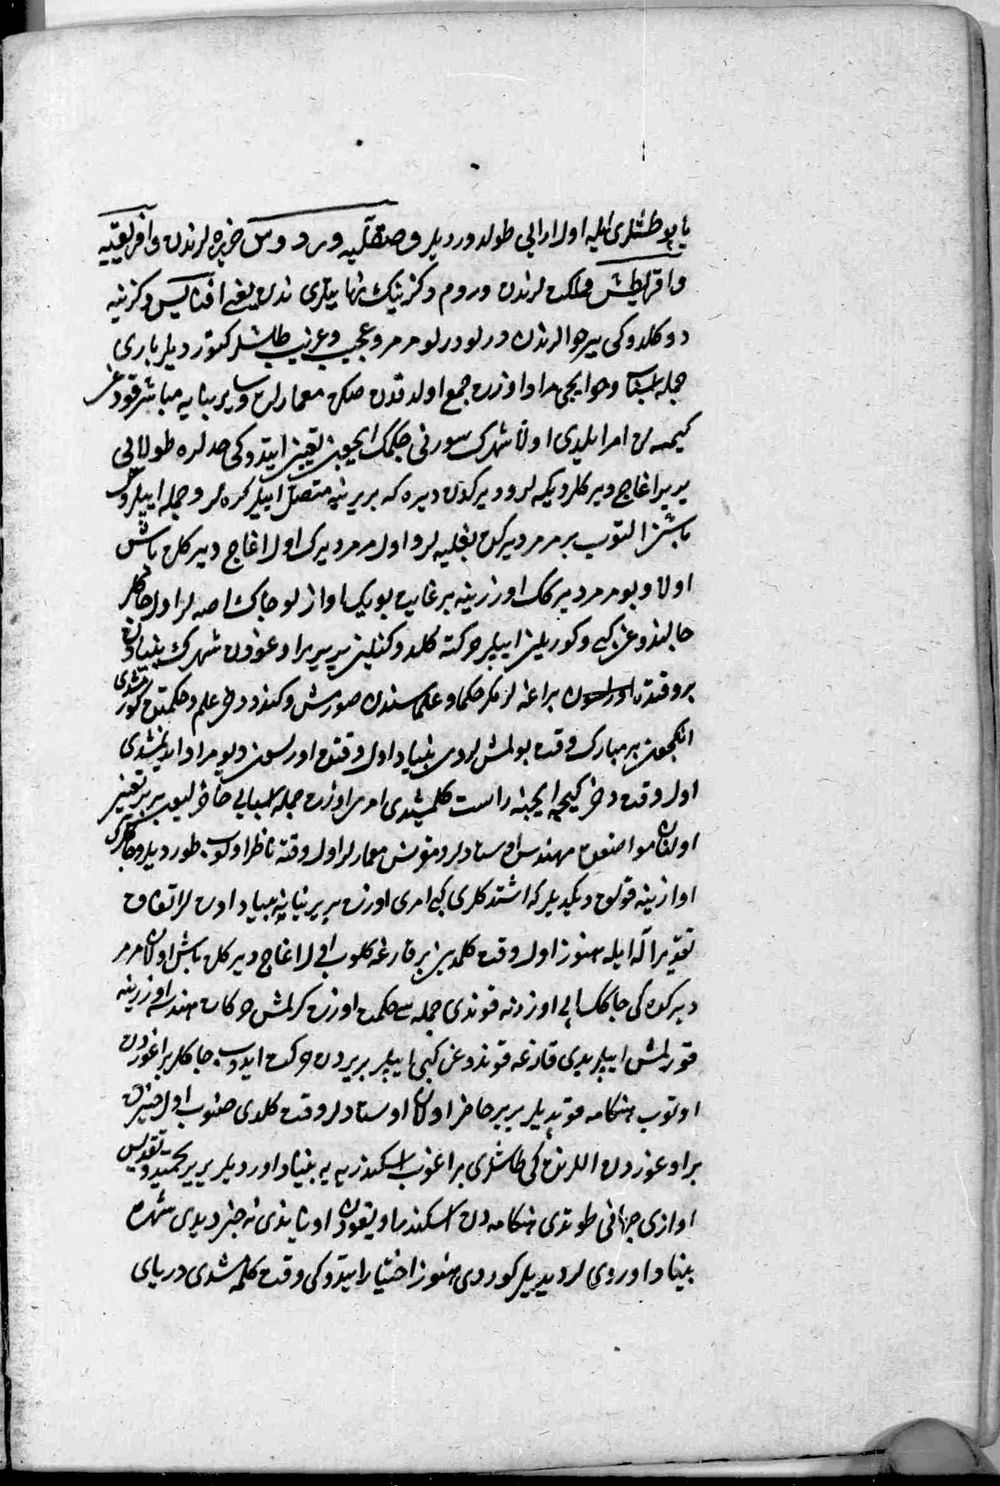 یاپو طشلری ایله اول ارایی طولدوردیلر و صقلیه و رودوس جزیره لرندن و افریقیه
و اقریطش مملکت لرندن و روم دکزینک نهایتلری ندن یعنی اقنایس دکزینه
دوکلدوکی یر حوالرندن درلو درلو مرمر و عجیب و غریب طاشلر کتوردیلر باری
جمله اسباب و حوایجی مراد اوزره جمع اولدقدن صکره معمارلره سایر بنایه مباشر
کیمسه لره امر ایلدی اولا شهرک سورنی چکمک ایچون تعیین ایتدوکی حدلره طولایی
یر یر اغاج دیرکلر دیکه لر و دیرکدن دیرکه که بربرینه متصل ایپلر کره لر و جمله ایپلروک
باشنی التوب بر مرمر دیرکه بغلیه لر و اول مرمر دیرک اول اغاج دیرکلره باش
اولا و بو مرمر دیرکک اوزرینه بر غایت بویک اوازلو جاک اصه لر اول جاکلر
چالندوغی کبی و کوریلن ایپلر حرکته کلدوکنلین یر یر براوغوردن شهرک بنیادن
بر وقتده اوراسون براغه لر مکر حکما و علماسندن صورمش و کندو دخی علم و حکمتدن کورمشدی
انکچون بر مبارک وقت بولمش لردی بنیاد اول وقتده اورلسون دیو مراد ایدنمشدی
اول وقت دخی کیجه ایچنه راست کلمشدی امری اوزره جمله اسبابی حاضرلیوب یر یر تعیین
اولنان مواضعده مهندس اوستادلر و منونس معمارلر اول وقته ناظر اولوب طوردیلر و جاکلرک
اوازینه قولق دیکدیلر که اشتدکلری کبی امری اوزره یر یر بنایه بنیاد اوره لر اتفاق
تقدیر اله ایله هنوز اول وقت کلمدین بر قارغه کلوب اول اغاج دیرکلره باش اولان مرمر
دیرکده کی جاکک ایپی اوزرنه قوندی جمله سی حکمت اوزره کرلمش حرکات هندسه اوزرینه
قورلمش ایپلریدی قارغه قوندوغی کبی ایپلر بریردن حرکت ایدوب جاکلر براغوردن
اوتوب هنکامه قوپدیلر یر یر حاضر اولان اوستادلر وقت کلدی صنوب اول حینده
براوغوردن اللرنده کی طاشلری براغوب اسکندریه یه بنیاد اوردیلر یر یر تحمید و تقدیس
اوازی جهانی طوتدی هنکامه دن اسکندر اویقودن اویاندی نه خبر دیدی شهره
بنیاد اوردی لر دیدیلر کوردی هنوز اختیار ایتدوکی وقت کلمه مشدی دریای